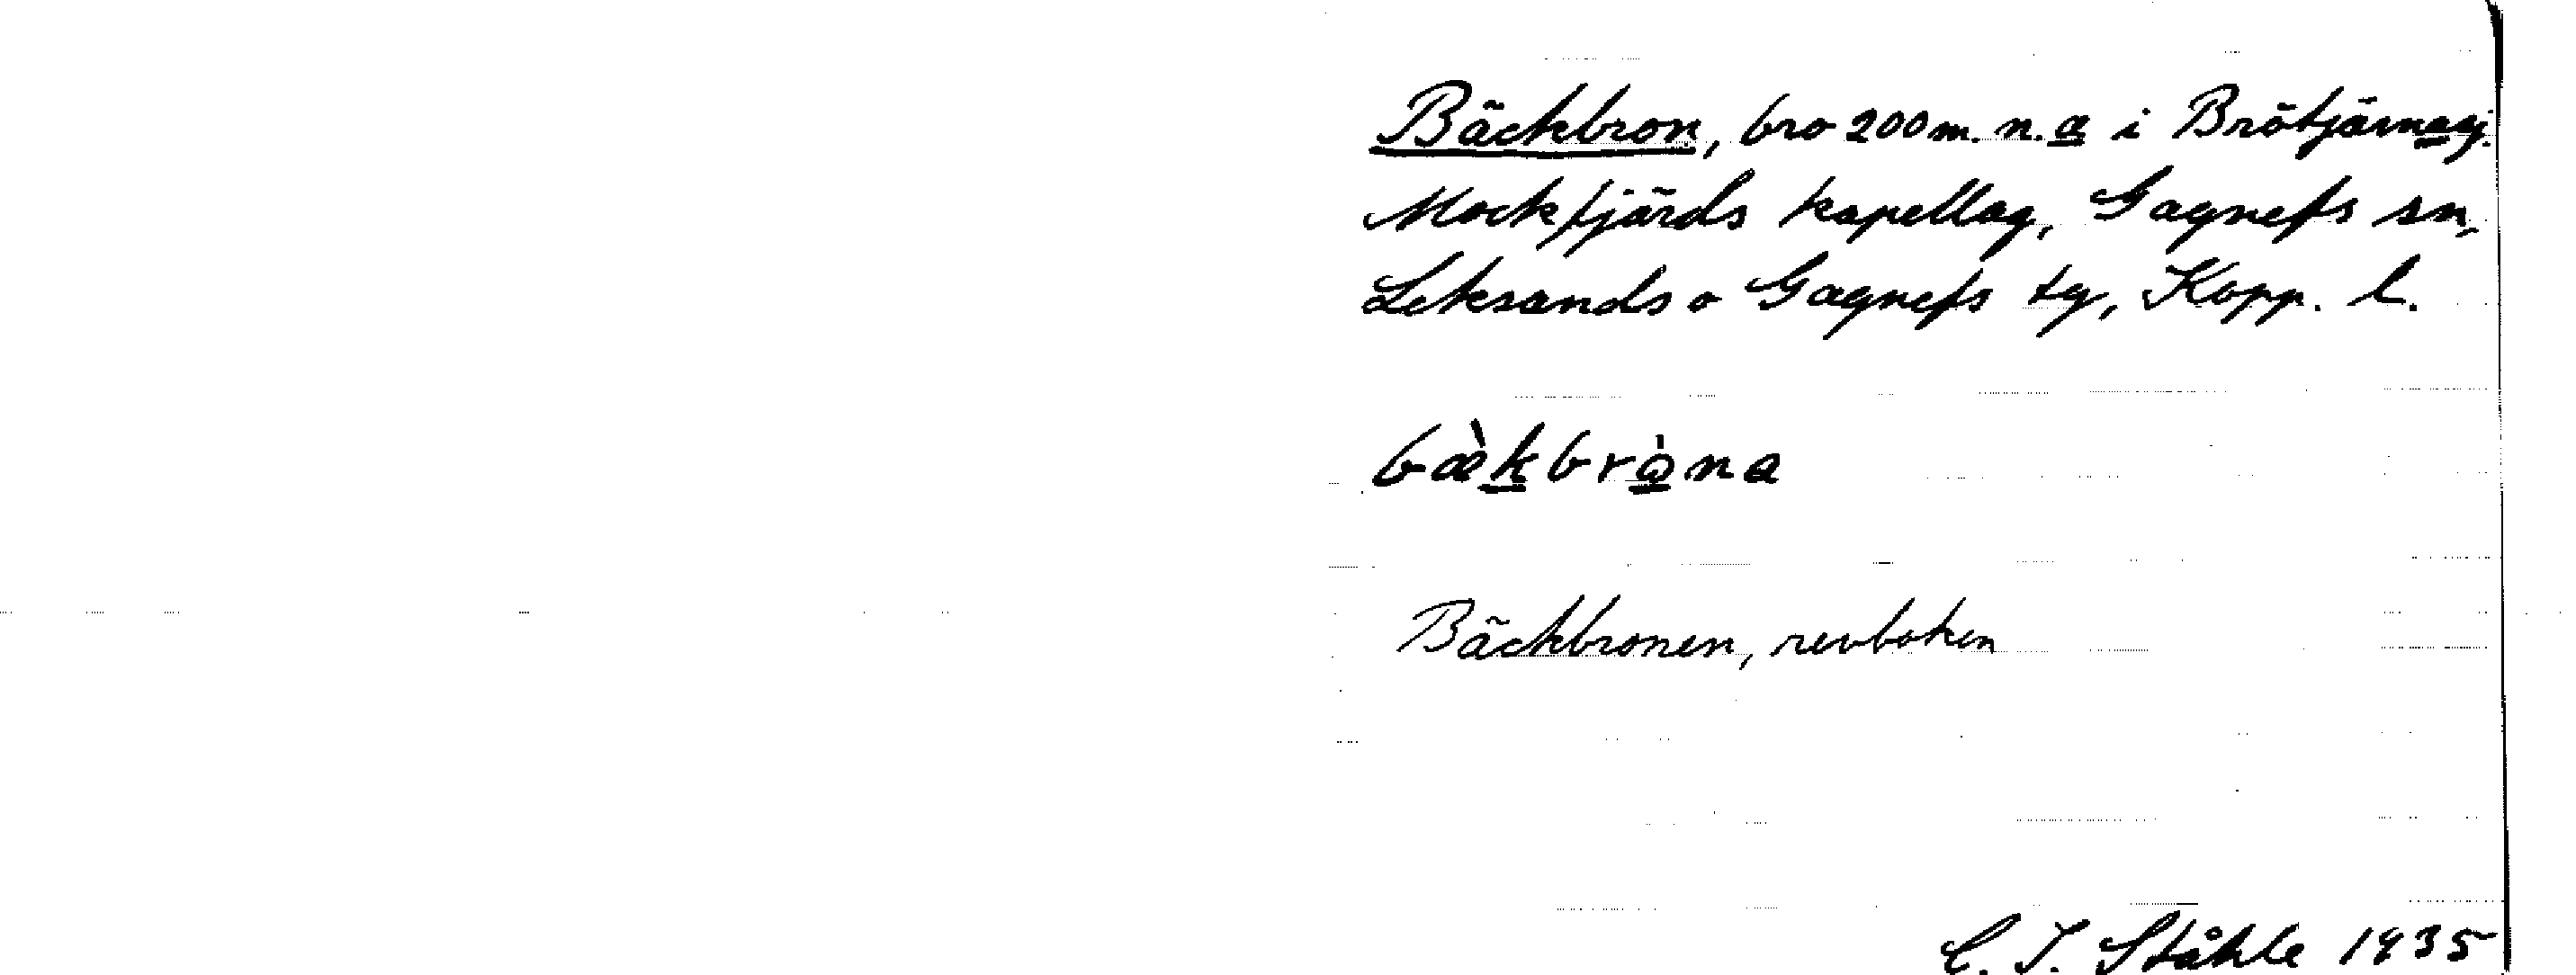 Bäckbron, bro 200 m. n. a i
Mockfjärds kapellag, Gagnefs sn,
Leksands o Gagnefs tg, Kopp. l.
bæ̀kbròna
Bäckbronen, revboken
C. I. Ståhle 1935